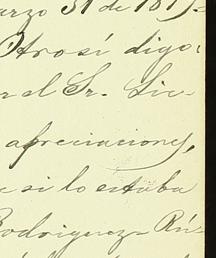 arzo 31 de 1879=
Otrosí digo:
r el Sr. Lic-
apreciaciones,
e si lo estaba
Rodriguez Rú-